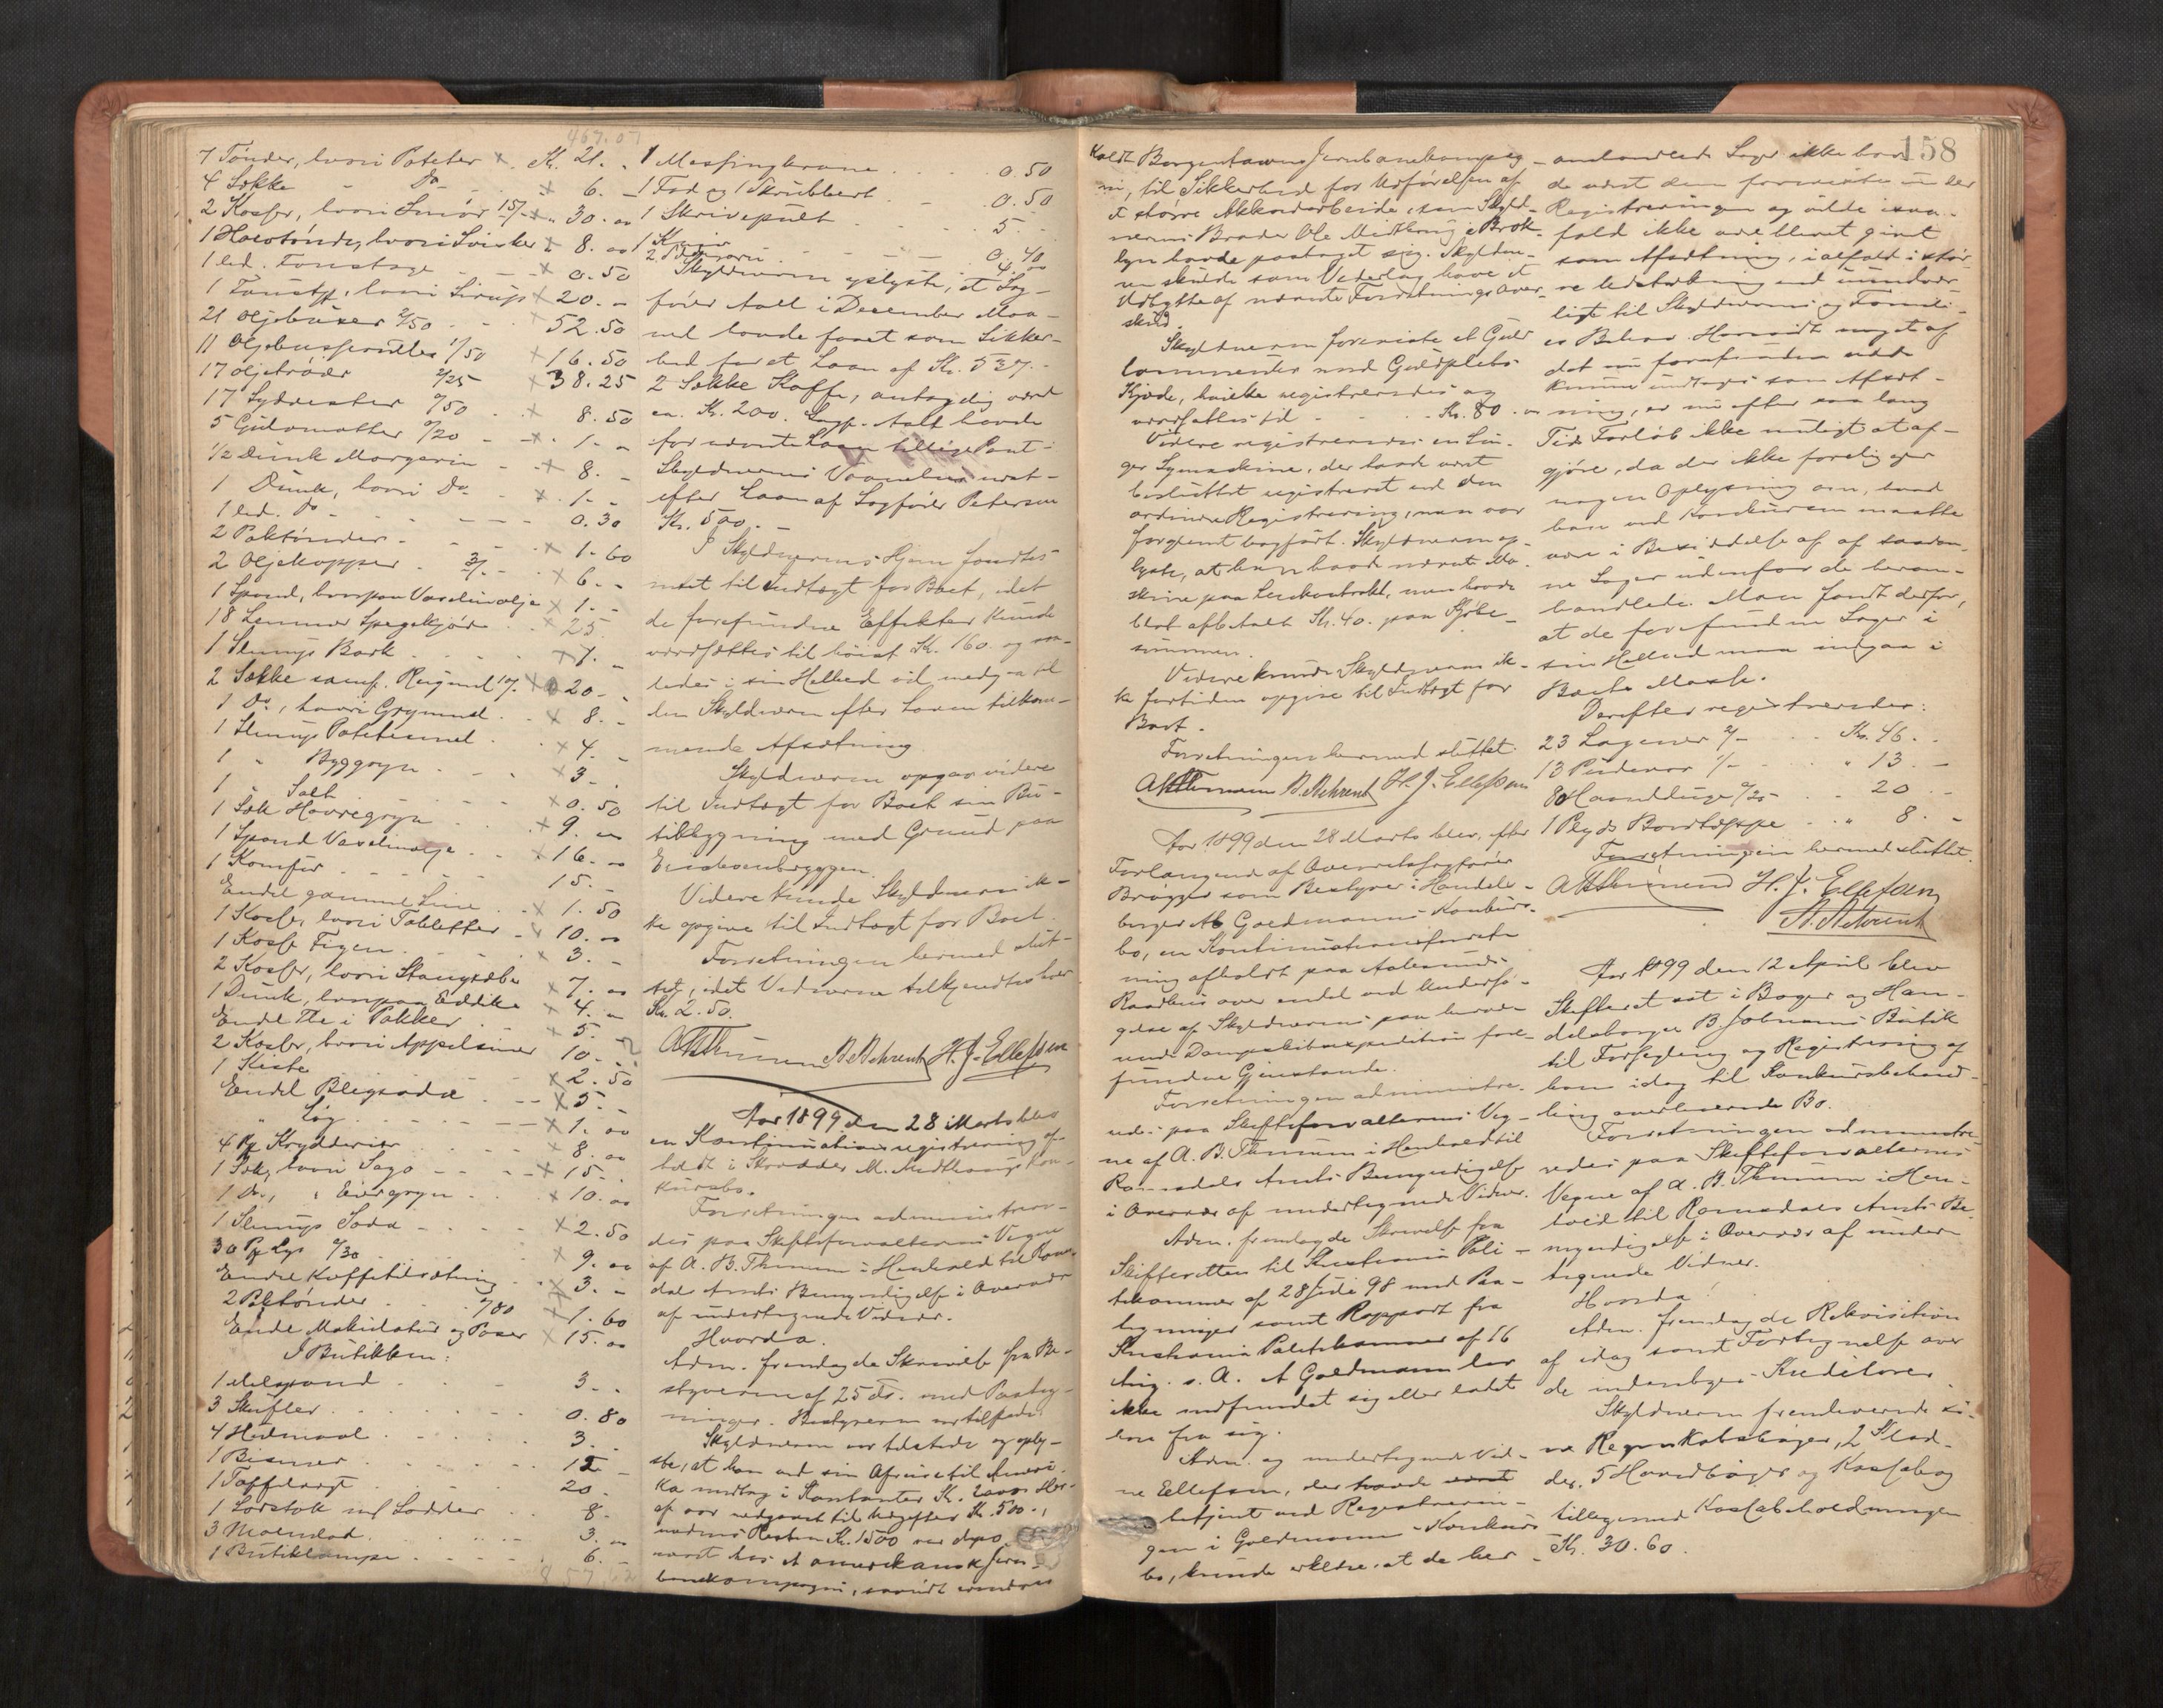 467.07
7 Tønder, hvori Poteter × Kr. 21. -
4 Sække - Do × 6. -
2 Kasser, hvori Smør 15/- × 30. 00
1 Halvtønde, hvori Svisker × 8. 00
1 led. × 0.50
1 hvori Sirup × 20. -
21 Oljebuxer 2/50 × 52.50
11 1/50 × 16.50
17 Oljetrøier 2/25 × 38.25
17 Sydvester 0/50 × 8.50
5 Gulvmatter 0/20 × 1. -
1/2 Dunk Margarin × 8. -
1 Dunk, hvori Do × 1. -
1 led. Do 0.30
2 Paktønder × 1.60
2 Oljekapper 3/- × 6. -
1 Spand, hvorpaa Vaselinolje × 1. -
18 Lemmer Spegekjød × 25.
1 Slump Bark × 7. -
2 Sække sams. Rugmel 10/- × 20. -
1 Do, hvori Grynmel × 8. -
1 Slump Potetesmel × 4. -
1 " Byggryn × 3. -
1 " Salt × 0.50
1 Sæk Havregryn × 9. 00
1 Spand Vaselinolje × 16. 00
1 Komfur 15. -
Endel gammel Line × 1.50
1 Kasse, hvori Tabletter × 10. 00
1 Kasse Figen × 3. -
2 Kasser, hvori Stangsæbe × 7. 00
1 Dunk, hvorpaa Eddike × 4. 00
Endel The i Pakker × 5. -
2 Kasser, hvori Appelsiner 10. -
1 Kiste × 2.50
Endel Blegsoda × 5. -
" Løg × 1. 00
4 Pk Krydderier × 8. 00
1 Sæk, hvori Sago × 15.
1 Do, " gryn × 10. 00
1 Slump Soda × 2.50
30 Pk Lys 0/30 × 9. 00
Endel Kaffetilsætning × 3. -
2 Paktønder 0/80 × 1.60
Endel Makulatur og Poser × 15. 00
I Butikken:
1 3. -
3 Skufler 0.80
4 Hulmaal 3. -
1 Bismer 12 -
1 Taffelvægt 20. -
1 Lodstok m/ Lodder 8. -
3 3. 00
1 Butiklampe 6. -
1 Messingkrane 0.50
1 Fad og 1 Skrubbert 0.50
1 Skrivepult 5. -
1 0.40
2 4.00
Skyldneren oplyste, at Sag-
fører Aall i December Maa-
ned havde faaet som Sikker-
hed for et Laan af Kr. 537. -
2 Sække Kaffe, antagelig værd
ca. Kr. 200. Sagf. Aall havde
for nævnte Laan tillige Pant i
Skyldnerens Varelager næst-
efter Laan af Sagfører Petersen
Kr. 500. -
I Skyldnerens Hjem fandtes
intet til Indtægt for Boet, idet
de forefundne Effekter kunde
værdsættes til høist Kr. 160 og saa-
ledes i sin Helhed vil medgaa til
den Skyldneren efter Loven tilkom-
mende Afsætning.
Skyldneren opgav videre
til Indtægt for Boet sin Bu-
tikbygning med Grund paa

Videre kunde Skyldneren ik-
ke opgive til Indtægt for Boet.
Forretningen hermed slut-
tet, idet Vidnerne tilkjendtes hver
Kr. 2.50.
A B Thimm A. Behrent H. J. Ellefsen
Aar 1899 den 28 Marts blev
en Kontinuationsregistrering af-
holdt i Skrædder M. Midthaugs Kon-
kursbo.
Forretningen administrere-
des paa Skifteforvalterens Vegne
af A. B. Thimm i Henhold til Roms-
dals Amts Bemyndigelse i Overvær
af undertegnede Vidner.
Hvorda.
Adm. fremlagde Skrivelse fra Be-
styreren af 25 ds. med Paateg-
ninger. Bestyreren var tilstede.
Skyldneren var tilstede og oply-
ste, at han ved sin Afreise til Ameri-
ka medtog i Kontanter Kr. 2000. Her-
af var medgaaet til Udgifter Kr. 500.,
medens Resten Kr. 1500 var depo-
neret hos et amerikansk Jern-
banekompagni, saavidt erindres
158
kaldt Jernbanekompag-
ni, til Sikkerhed for Udførelsen af
et større Akkordarbeide, som Skyld-
nerens Broder Ole Midthaug i Brok-
lyn havde paataget sig. Skyldne-
ren skulde som Vederlag have et
Udbytte af nævnte Forretnings Over-
skud.
Skyldneren foreviste et Guld
lommeuhr med Guldplets
Kjæde, hvilke registreredes og
værdsattes til Kr. 80. 00
Videre registreredes en Sin-
ger Symaskine, der havde været
besluttet registreret ved den
ordinære Registrering, men var
forglemt bogført. Skyldneren op-
lyste, at han havde nævnte Ma-
skine paa Leiekontrakt, men havde
blot afbetalt Kr. 40. paa Kjøbe-
summen.
Videre kunde Skyldneren ik-
ke fortiden opgive til Indtægt for
Boet.
Forretningen hermed sluttet.
A B Thimm A. Behrent H. J. Ellefsen
Aar 1899 den 28 Marts blev, efter
Forlangende af Overretssagfører
Brügger som Bestyrer i Handels-
borger A. Goldmanns Konkurs-
bo, en Kontinuationsforret-
ning afholdt paa Aalesunds
Raadhus over endel ved Undersø-
gelse af Skyldnerens paa hervæ-
rende Dampskibsexpedition fore-
fundne Gjenstande.
Forretningen administre-
redes paa Skifteforvalterens Veg-
ne af A. B. Thimm i Henhold til
Romsdals Amts Bemyndigelse
i Overvær af undertegnede Vidner.
Adm. fremlagde Skrivelse fra
Skifteretten til Kristiania Poli-
tikammer af 28 Juli 98 med Paa-
tegninger samt Rapport fra
Kristiania Politikammer af 16
Aug. s. A. A Goldmann har
ikke indfundet sig eller ladet
høre fra sig.
Adm. og undertegnede Vid-
ne Ellefsen, der havde været
betjent ved Registrerin-
gen i Goldmanns Konkurs-
bo, kunde erklære, at de her
omhandlede Sager ikke hav-
de været dem foreviste under
Registreringen og vilde i saa-
fald ikke være blevet givet
som Afsætning, i alfald i stør-
re Udstrækning end uundvær-
ligt til Skyldnerens og Famili-
es Behov. Hvorvidt noget af
det nu forefundne vilde
kunne undtages som Afsæt-
ning, er nu efter saa lang
Tids Forløb ikke muligt at af-
gjøre, da der ikke foreligger
nogen Oplysning om, hvad
han ved Konkursen maatte
være i Besiddelse af af saadan-
ne Sager udenfor de herom-
handlede. Man fandt derfor,
at de forefundne Sager i
sin Helhed maa indgaa i
Boets Masse.
Derefter registreredes:
23 Lagener 2/- Kr. 46. -
13 Pudevar 1/- " 13. -
80 Haandduge 0/25 - 20 -
1 Plyds Bordteppe " 8. -
Forretningen hermed sluttet.
A B Thimm H. J. Ellefsen
A. Behrent
Aar 1899 den 12 April blev
Skifteret sat i Borger og Han-
delsborger B. Johnsens Butik
til Forsegling og Registrering af
hans idag til Konkursbehand-
ling overleverede Bo.
Forretningen administre-
redes paa Skifteforvalterens
Vegne af A. B. Thimm i Hen-
hold til Romsdals Amts Be-
myndigelse i Overvær af under-
tegnede Vidner.
Hvorda!
Adm. fremlagde Rekvisition
af idag samt Fortegnelse over
de indenbyes Kreditorer.
Skyldneren fremleverede si-
ne Regnskabsbøger, 2 Klad-
der, 5 Hovedbøger og Kassabog
tilligemed Kassabeholdningen
Kr. 30.60.